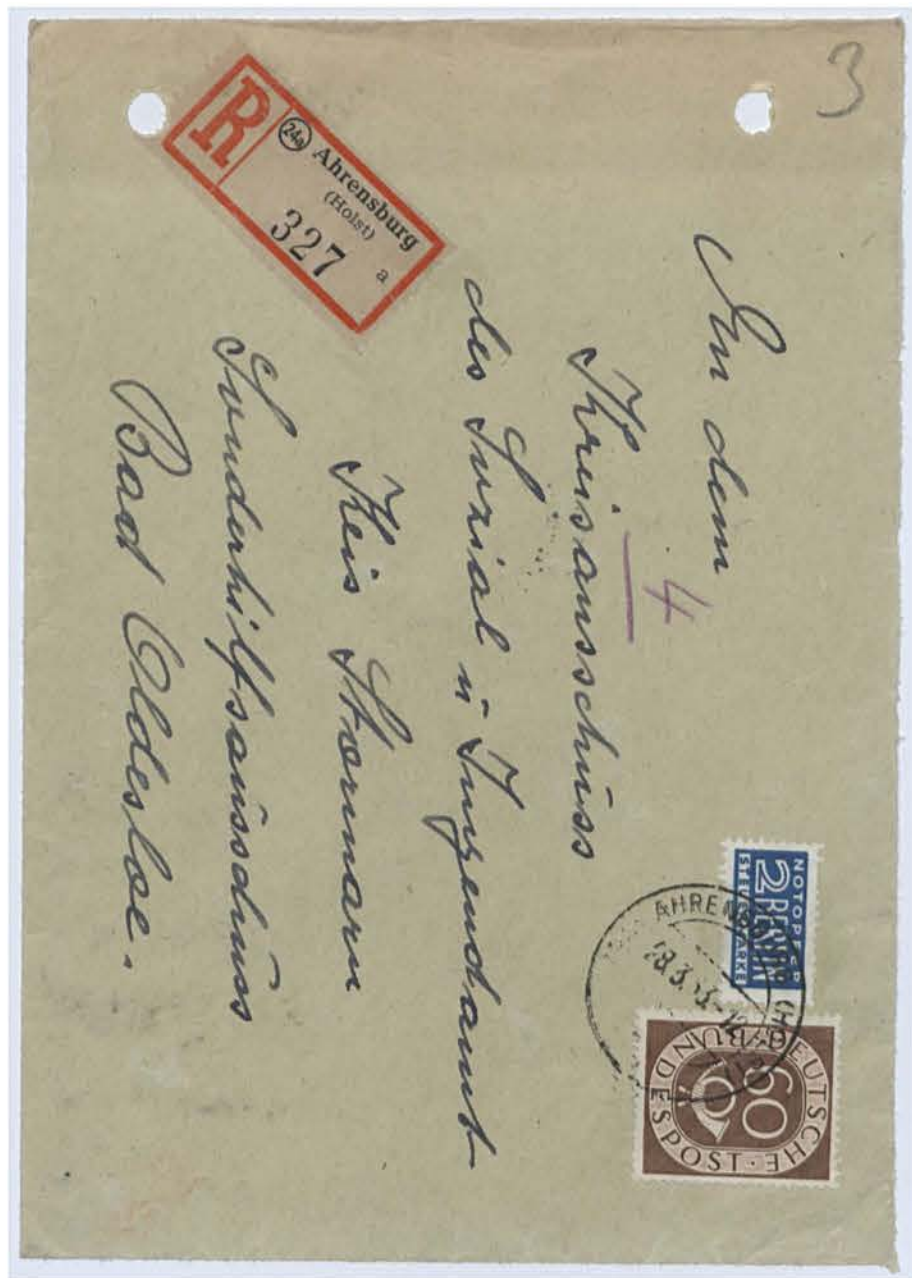 3
R
24a Ahrensburg
(Holst)
327 a
An dem
4
Kreisausschuss
des Sozial u Jugendamt
Keis Stormarn
Sonderhilfsausschuss
Bad Oldesloe.
NOTOPFER
2 BERLIN
STEUERMARKE
AHRENSBURG (HOLST)
28.3.53-12
60
DEUTSCHE BUNDESPOST